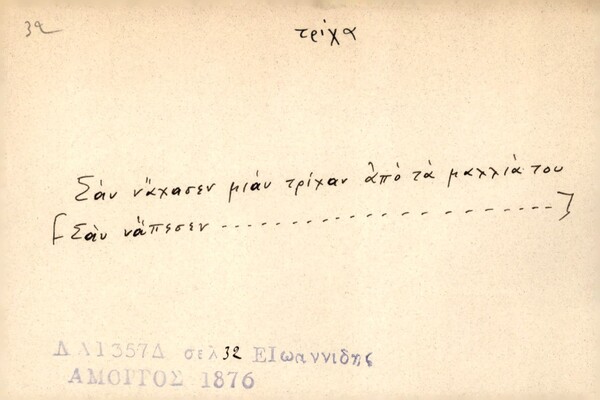 32
τρίχα
Σάν νἄχασεν μιάν τρίχαν ἀπό τά μαλλιά του
[Σάν νἄπεσεν - - - - - - - - - - - - - - - - - ]
ΛΑ1357Δ σελ32 ΕΙωαννιδης
ΑΜΟΡΓΟΣ 1876